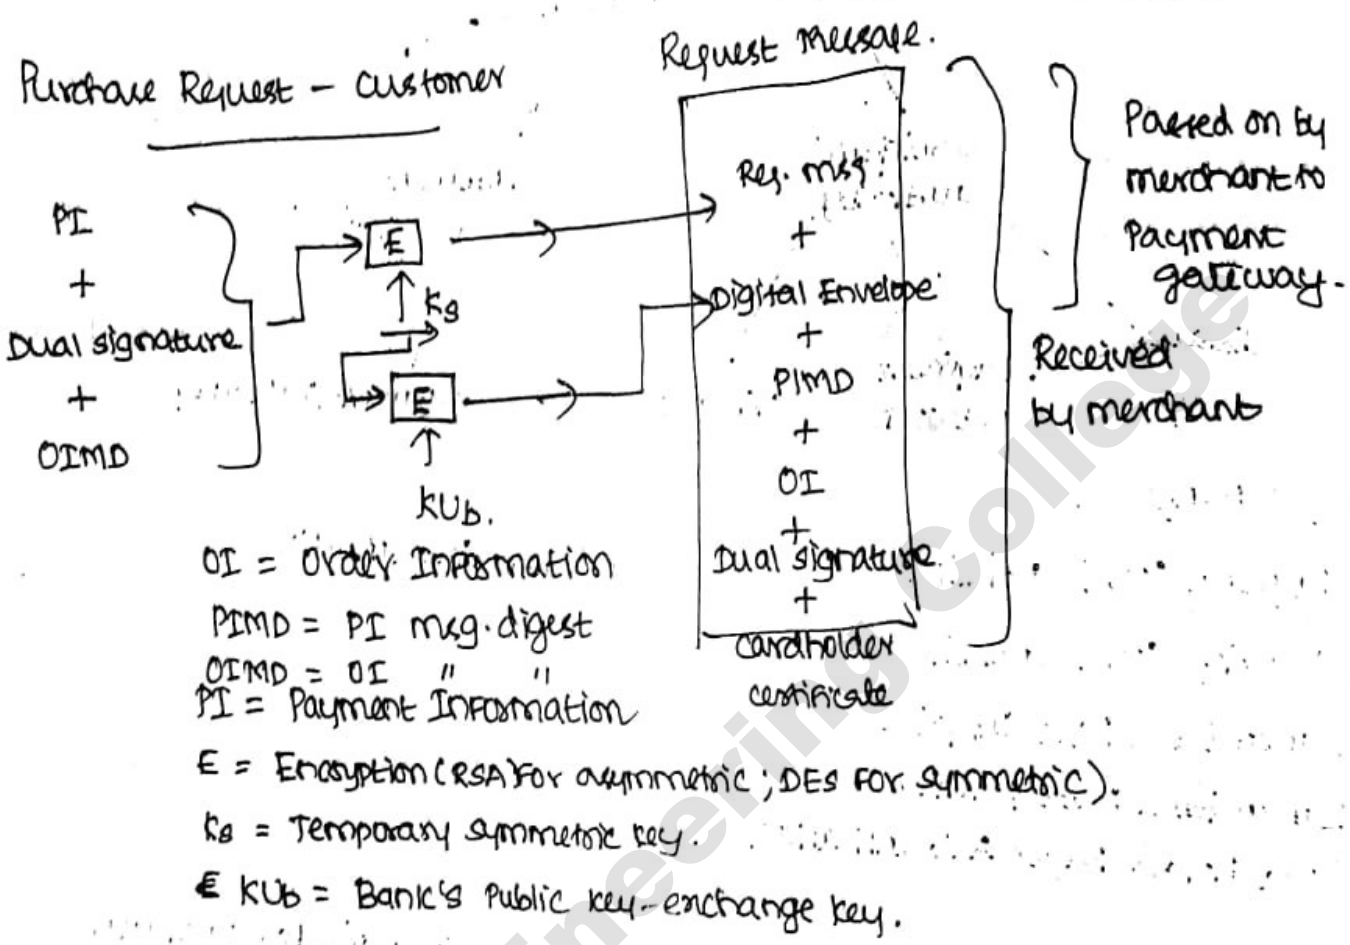 Purchase Request - customer
Request message.
PI
+
Dual signature
+
OIMD
E
Ks
E
KUb.
Req. msg
+
Digital Envelope
+
PIMD
+
OI
+
Dual signature
+
cardholder
certificate
Passed on by
merchant to
Payment
gateway.
Received
by merchant
OI = Order Information
PIMD = PI msg. digest
OIMD = OI " "
PI = Payment Information
E = Encryption (RSA for asymmetric; DES for symmetric).
Ks = Temporary symmetric key.
E KUb = Bank's Public key-exchange key.
ineering College